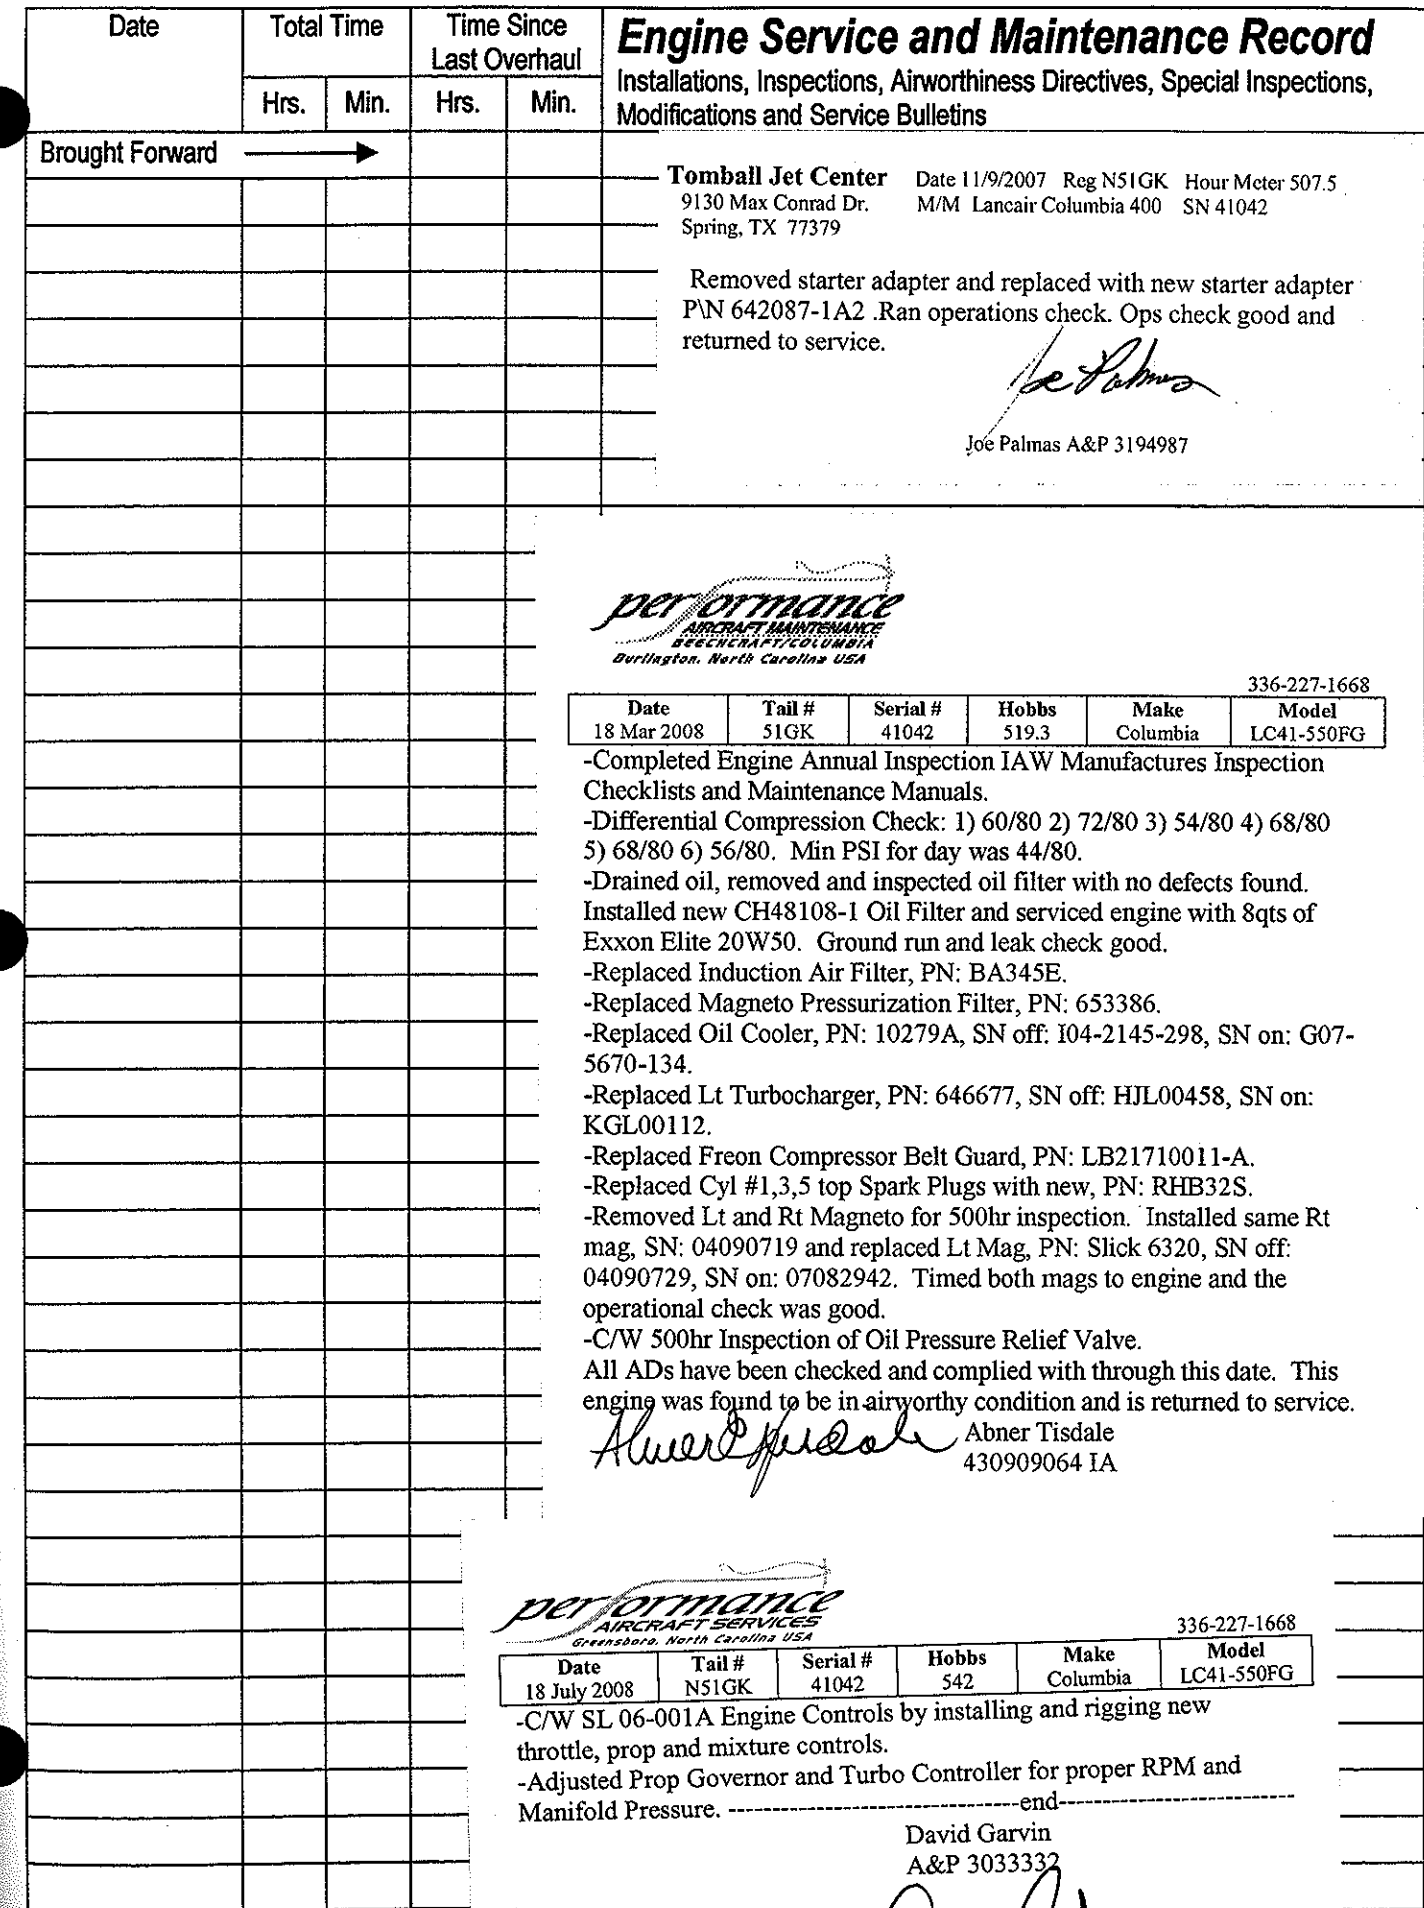 Date Total Time Time Since Last Overhaul
Hrs. Min. Hrs. Min.
Engine Service and Maintenance Record
Installations, Inspections, Airworthiness Directives, Special Inspections,
Modifications and Service Bulletins
Brought Forward
Tomball Jet Center Date 11/9/2007 Reg N51GK Hour Meter 507.5
9130 Max Conrad Dr. M/M Lancair Columbia 400 SN 41042
Spring, TX 77379
Removed starter adapter and replaced with new starter adapter
P\N 642087-1A2 .Ran operations check. Ops check good and
returned to service.
Joe Palmas
Joe Palmas A&P 3194987
performance
AIRCRAFT MAINTENANCE
BEECHCRAFT/COLUMBIA
Burlington, North Carolina USA
336-227-1668
Date Tail # Serial # Hobbs Make Model
18 Mar 2008 51GK 41042 519.3 Columbia LC41-550FG
-Completed Engine Annual Inspection IAW Manufactures Inspection
Checklists and Maintenance Manuals.
-Differential Compression Check: 1) 60/80 2) 72/80 3) 54/80 4) 68/80
5) 68/80 6) 56/80. Min PSI for day was 44/80.
-Drained oil, removed and inspected oil filter with no defects found.
Installed new CH48108-1 Oil Filter and serviced engine with 8qts of
Exxon Elite 20W50. Ground run and leak check good.
-Replaced Induction Air Filter, PN: BA345E.
-Replaced Magneto Pressurization Filter, PN: 653386.
-Replaced Oil Cooler, PN: 10279A, SN off: I04-2145-298, SN on: G07-
5670-134.
-Replaced Lt Turbocharger, PN: 646677, SN off: HJL00458, SN on:
KGL00112.
-Replaced Freon Compressor Belt Guard, PN: LB21710011-A.
-Replaced Cyl #1,3,5 top Spark Plugs with new, PN: RHB32S.
-Removed Lt and Rt Magneto for 500hr inspection. Installed same Rt
mag, SN: 04090719 and replaced Lt Mag, PN: Slick 6320, SN off:
04090729, SN on: 07082942. Timed both mags to engine and the
operational check was good.
-C/W 500hr Inspection of Oil Pressure Relief Valve.
All ADs have been checked and complied with through this date. This
engine was found to be in airworthy condition and is returned to service.
Abner Tisdale
430909064 IA
performance
AIRCRAFT SERVICES
Greensboro, North Carolina USA
336-227-1668
Date Tail # Serial # Hobbs Make Model
18 July 2008 N51GK 41042 542 Columbia LC41-550FG
-C/W SL 06-001A Engine Controls by installing and rigging new
throttle, prop and mixture controls.
-Adjusted Prop Governor and Turbo Controller for proper RPM and
Manifold Pressure. --------------------------------end--------------------------
David Garvin
A&P 3033332